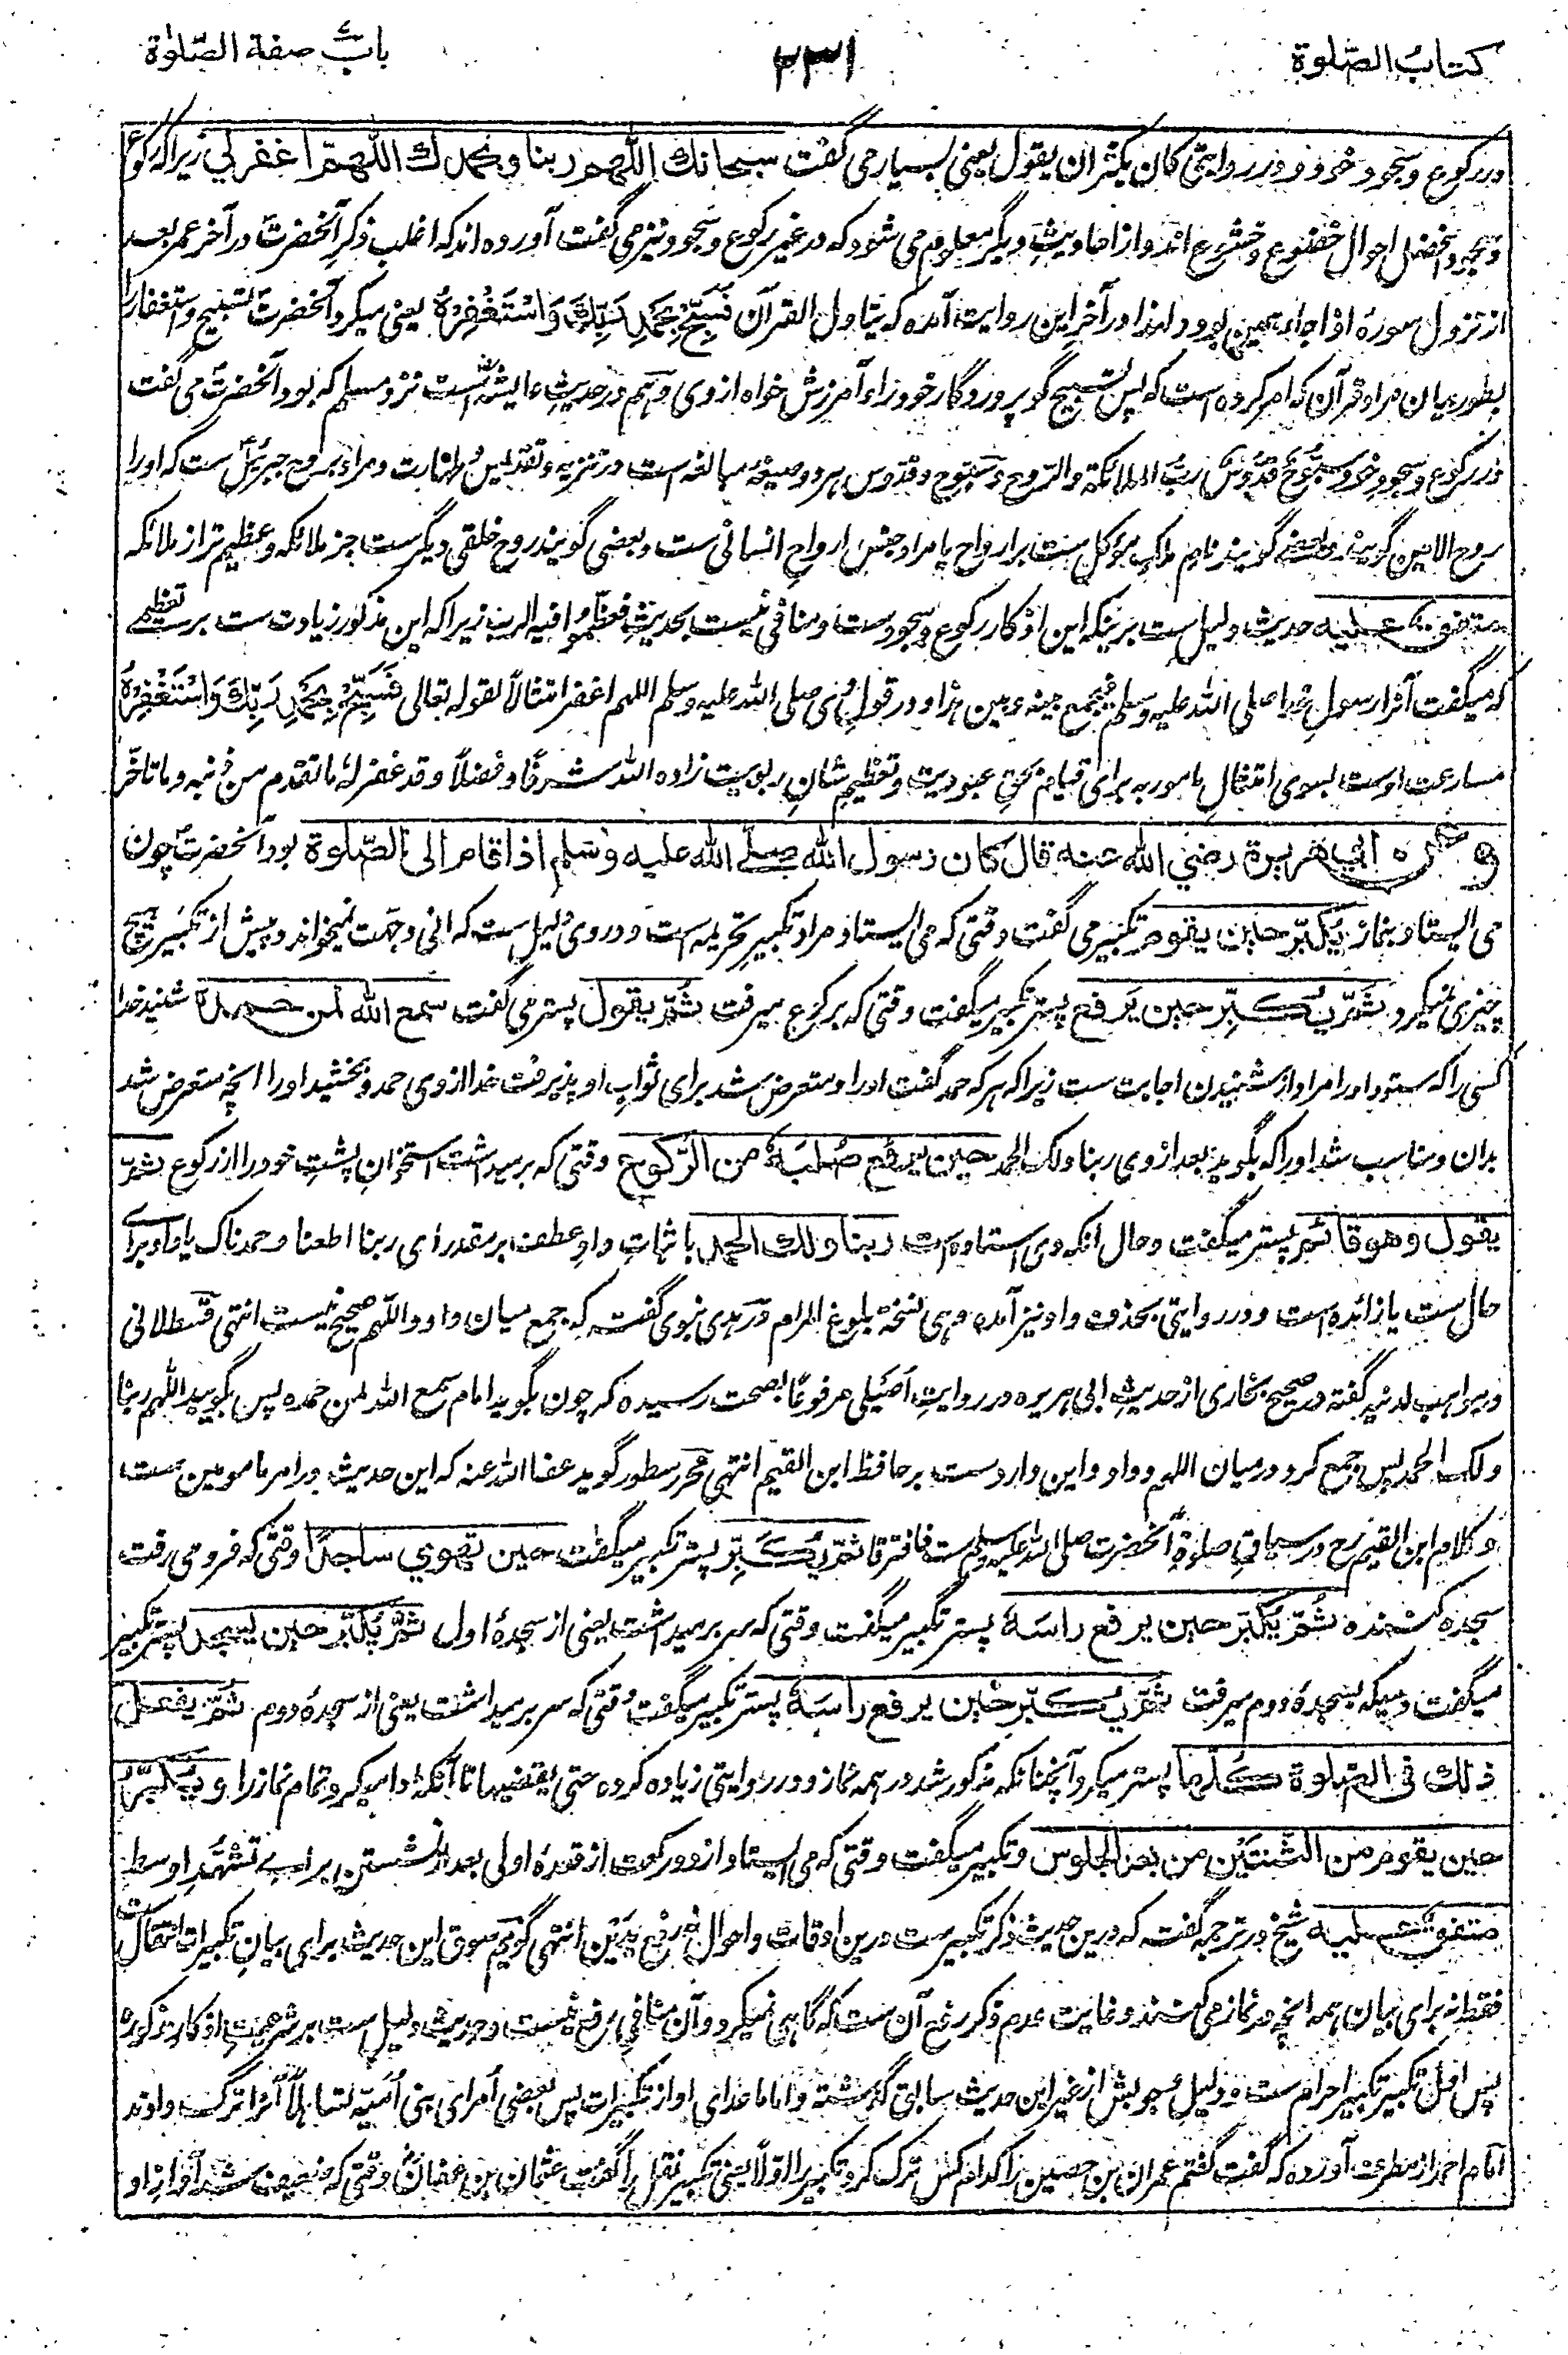 کتاب الصّلوة
۲۳۱
باب صفة الصّلوٰة
در رکوع و سجود خود و در روایتی کان یکثر ان یقول یعنی بسیار می گفت سبحانك اللّهم ربنا وبحمدك اللّهمّ اغفرلي زیراکه رکوع
و سجود افضل احوال خضوع و خشوع اند و از احادیث دیگر معلوم می شود که در غیر رکوع و سجود نیز می گفت آورده اند که اغلب ذکر آنحضرت در آخر عمر بعد
از نزول سورهٔ اذا جاء همین بود و لهذا در آخر این روایت آمده که یتاول القرآن فَسَبِّحْ بِحَمْدِ رَبِّكَ وَاسْتَغْفِرْهُ یعنی میکرد آنحضرت تسبیح و استغفار را
بطور بیان مراد قرآن که امر کرده است که پس تسبیح گو پروردگار خود را و آمرزش خواه از وی و هم در حدیث عایشه است نزد مسلم که بود آنحضرت می گفت
در رکوع و سجود خود سبّوح قدّوس ربّ الملائکة والرّوح و سبّوح و قدّوس هر دو صیغهٔ مبالغه است در تنزیه و تقدیس و طهارت و مراد بروح جبرئیل ست که او را
روح الامین گویند و بعضی گویند نام ملک موکل ست بر ارواح یا مراد جنس ارواح انسانی ست و بعضی گویند روح خلقی دیگر ست جز ملائکه و عظیم تر از ملائکه
متفق علیه حدیث دلیل ست برینکه این اذکار رکوع و سجودست و منافی نیست بحدیث فعظموا فیه الرب زیراکه این مذکور زیادت ست بر تعظیمے
که میگفت آنرا رسول خدا صلی الله علیه وسلم فیجمع بینه و بین هذا و در قول وی صلی الله علیه وسلم اللهم اغفر امتثالًا لقوله تعالی فَسَبِّحْ بِحَمْدِ رَبِّكَ وَاسْتَغْفِرْهُ
مسارعت اوست بسوی امتثال مامور به برای قیام بحق عبودیت و تعظیم شان ربوبیت زاده الله شرفًا و فضلاً و قد غفر لهٔ ما تقدم من ذنبه و ما تاخّر
وعن ابي هريرة رضي الله عنه قال كان رسول الله صلّے الله عليه وسلم اذا قام الى الصّلوة بود آنحضرت چون
می ایستاد بنماز يكبّر حين يقوم تکبیر می گفت وقتی که می ایستاد مراد تکبیر تحریمه است و در وی دلیل ست که انی وجهت نمیخواند و پیش از تکبیر هیچ
چیزی نمیکرد ثمّ يكبّر حين يركع پستر تکبیر میگفت وقتی که برکوع میرفت ثمّ يقول پستر می گفت سمع الله لمن حمده شنید خدا
کسی را که ستود او را مراد از شنیدن اجابت ست زیراکه هر که حمد گفت او را و متعرض شد برای ثواب او پذیرفت خدا از وی حمد و بخشید او را آنچه متعرض شد
بدان و مناسب شد او را که بگوید بعد ازوی ربنا ولک الحمد حين يرفع صُلبَهٗ من الرّكوع وقتی که برمیداشت استخوان پشت خود را از رکوع ثمّ
يقول وهو قائم پستر میگفت و حال آنکه وی استاده است ربنا ولك الحمد باثبات واو عطف بر مقدر ای ربنا اطعنا و حمدناک یا واو برای
حال ست یا زائده است و در روایتی بحذف واو نیز آمده و هی نسخهٔ بلوغ المرام در هدی نبوی گفته که جمع میان واو و اللّهم صحیح نیست انتهی قسطلانی
در مواهب لدنیه گفته در صحیح بخاری از حدیث ابی هریره در روایت اصیلی مرفوعًا بصحت رسیده که چون بگوید امام سمع الله لمن حمده پس بگوید اللّهم ربنا
ولک الحمد پس جمع کرد درمیان اللهم و واو و این واردست بر حافظ ابن القیم انتهی محرر سطور گوید عفا الله عنه که این حدیث در امر مامومین ست
و کلام ابن القیم رح در سیاق صلوة آنحضرت صلی الله علیه وسلم ست فافترقا ثمّ يكبّر پستر تکبیر میگفت حين يهوي ساجدًا وقتی که فرو می رفت
سجده کننده ثمّ يكبّر حين يرفع راسهٗ پستر تکبیر میگفت وقتی که سر برمیداشت یعنی از سجدهٔ اول ثمّ يكبّر حين يسجد پستر تکبیر
میگفت وقتیکه بسجدهٔ دوم میرفت ثمّ يكبّر حين يرفع راسهٗ پستر تکبیر میگفت وقتی که سر برمیداشت یعنی از سجدهٔ دوم ثمّ يفعل
ذلك فى الصّلوة كلّها پستر میکرد آنچنانکه مذکور شد در همه نماز و در روایتی زیاده کرده حتی یقضیها تا آنکه ادا میکرد تمام نماز را ويكبّر
حين يقوم من الثّنتين من بعد الجلوس و تکبیر میگفت وقتی که می ایستاد از دو رکعت از قعدهٔ اولی بعد از نشستن برای تشهّد اوسط
متفق عليه شیخ در ترجمه گفت که درین حدیث ذکر تکبیرست درین اوقات و احوال نه رفع یدین انتهی گویم سوق این حدیث برای بیان تکبیرات انتقال ست
فقط نه برای بیان همه آنچه در نماز می کنند و غایت عدم ذکر رفع آن ست که گاهی نمیکرد و آن منافی رفع نیست و حدیث دلیل ست بر شرعیت اذکار مذکوره
پس اول تکبیر تکبیر احرام ست و دلیل وجوبش از غیر این حدیث سابق گذشته و اما ما عدای او از تکبیرات پس بعضی اُمرای بنی اُمیّه تساهلاً آنرا ترک دادند
امام احمد از مطرف آورده که گفت گفتم عمران بن حصین را کدام کس ترک کرد تکبیر را اوّلاً یعنی تکبیر نقل را گفت عثمان بن عفانؓ وقتی که ضعیف شد آواز او